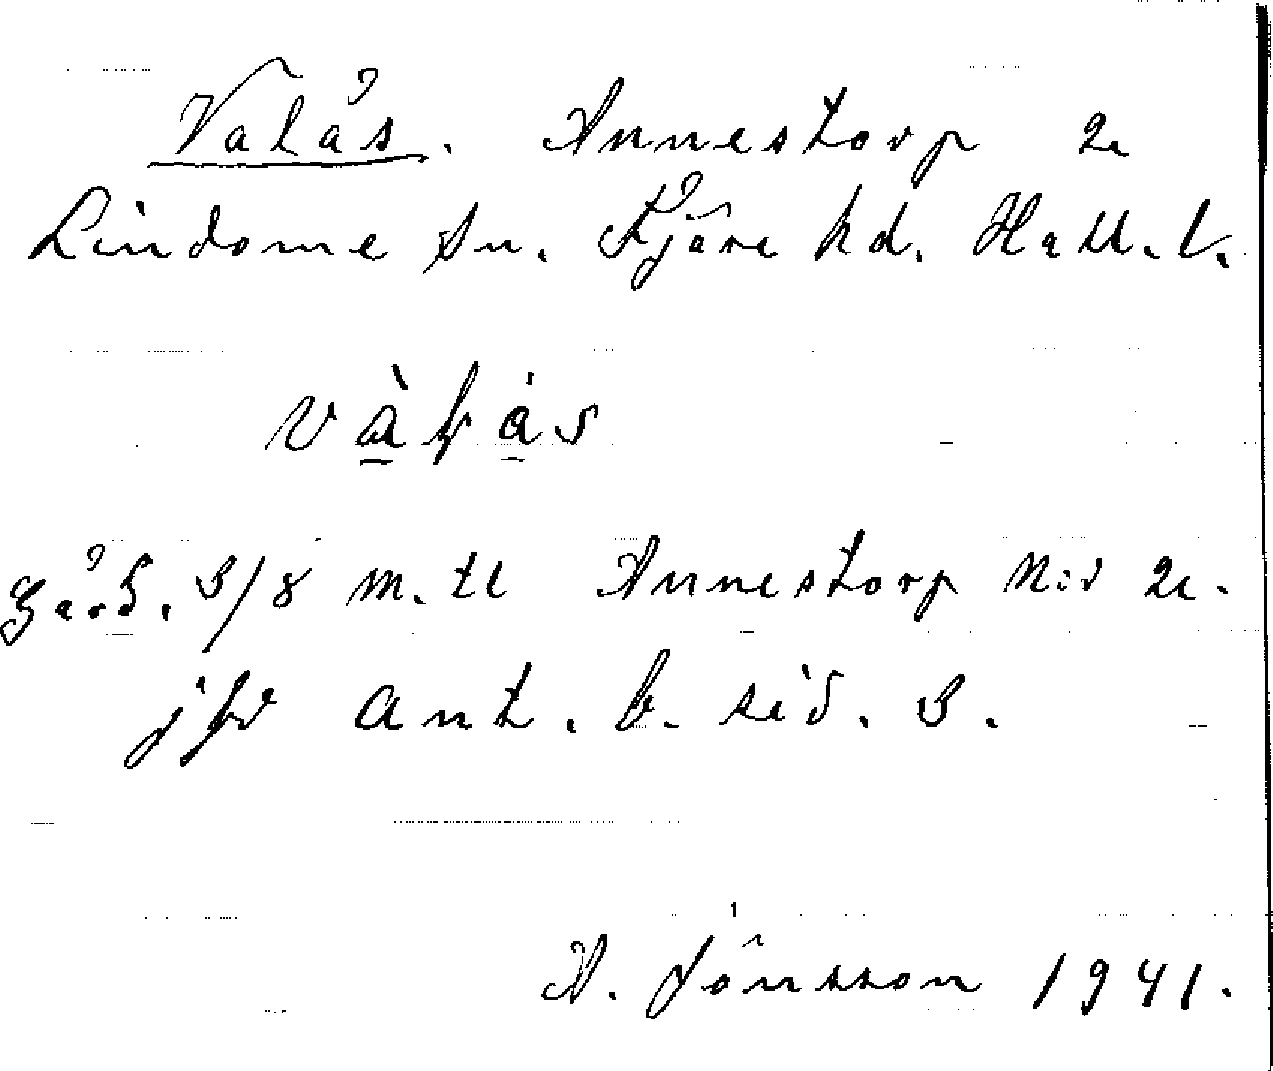 Valås. Annestorp 2a
Lindome sn. Fjäre hd. Hall. l.
vàɫás
Gård. 3/8 m.tl Annestorp N:r 2a.
jfr ant. b. sid. 3.
A. Jönsson 1941.